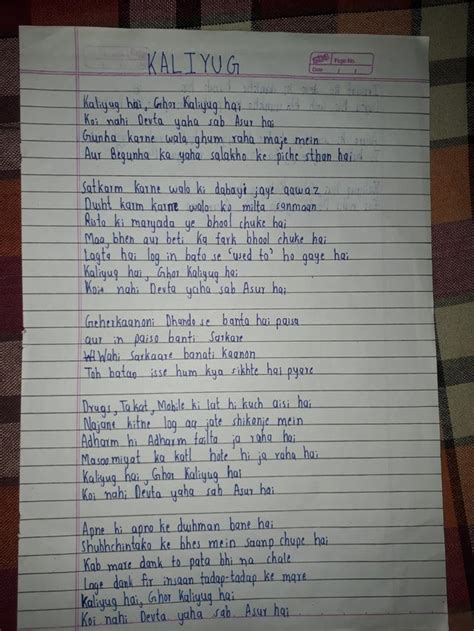 KALIYUG
Page No.
Date / /
Kaliyug hai, Ghor Kaliyug hai
Koi nahi Devta yaha sab Asur hai
Gunha karne wala ghum raha maje mein
Aur Begunha ka yaha salakho ke piche sthan hai
Satkarm karne walo ki dabayi jaye aawaz
Dusht karm karne walo ko milta sanmaan
Ruto ki maryada ye bhool chuke hai
Maa, bhen aur beti ka fark bhool chuke hai
Lagta hai log in bato se 'used to' ho gaye hai
Kaliyug hai, Ghor Kaliyug hai
Koi nahi Devta yaha sab Asur hai
Geherkaanoni Dhando se banta hai paisa
aur in paiso banti Sarkare
Wahi Sarkaare banati kaanon
Toh batao isse hum kya sikhte hai pyare
Drugs, Takat, Mobile ki lat hi kuch aisi hai
Najane kitne log aa jate shikonje mein
Adharm hi Adharm failta ja raha hai
Masoomiyat ka katl hote hi ja raha hai
Kaliyug hai, Ghor Kaliyug hai
Koi nahi Devta yaha sab Asur hai
Apne hi apno ke dushman bane hai
Shubhchintako ke bhes mein saanp chupe hai
Kab mare dank to pata bhi na chale
Lage dank fir insaan tadap-tadap ke mare
Kaliyug hai, Ghor Kaliyug hai
Koi nahi Devta yaha sab Asur hai